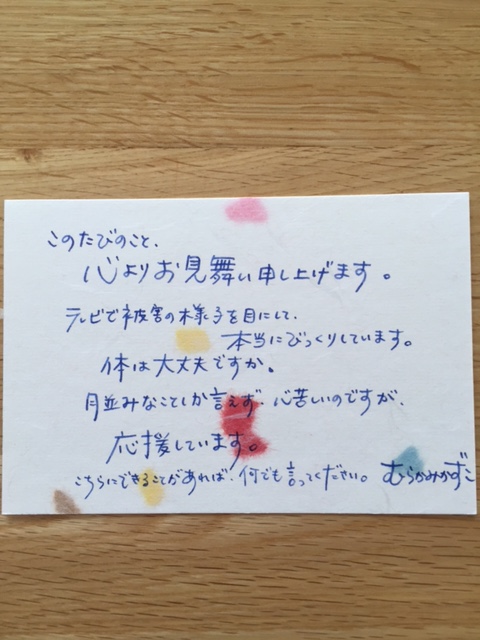 このたびのこと、
心よりお見舞い申し上げます。
テレビで被害の様子を目にして、
本当にびっくりしています。
体は大丈夫ですか。
月並みなことしか言えず、心苦しいのですが、
応援しています。
こちらにできることがあれば、何でも言ってください。 むらかみかずこ